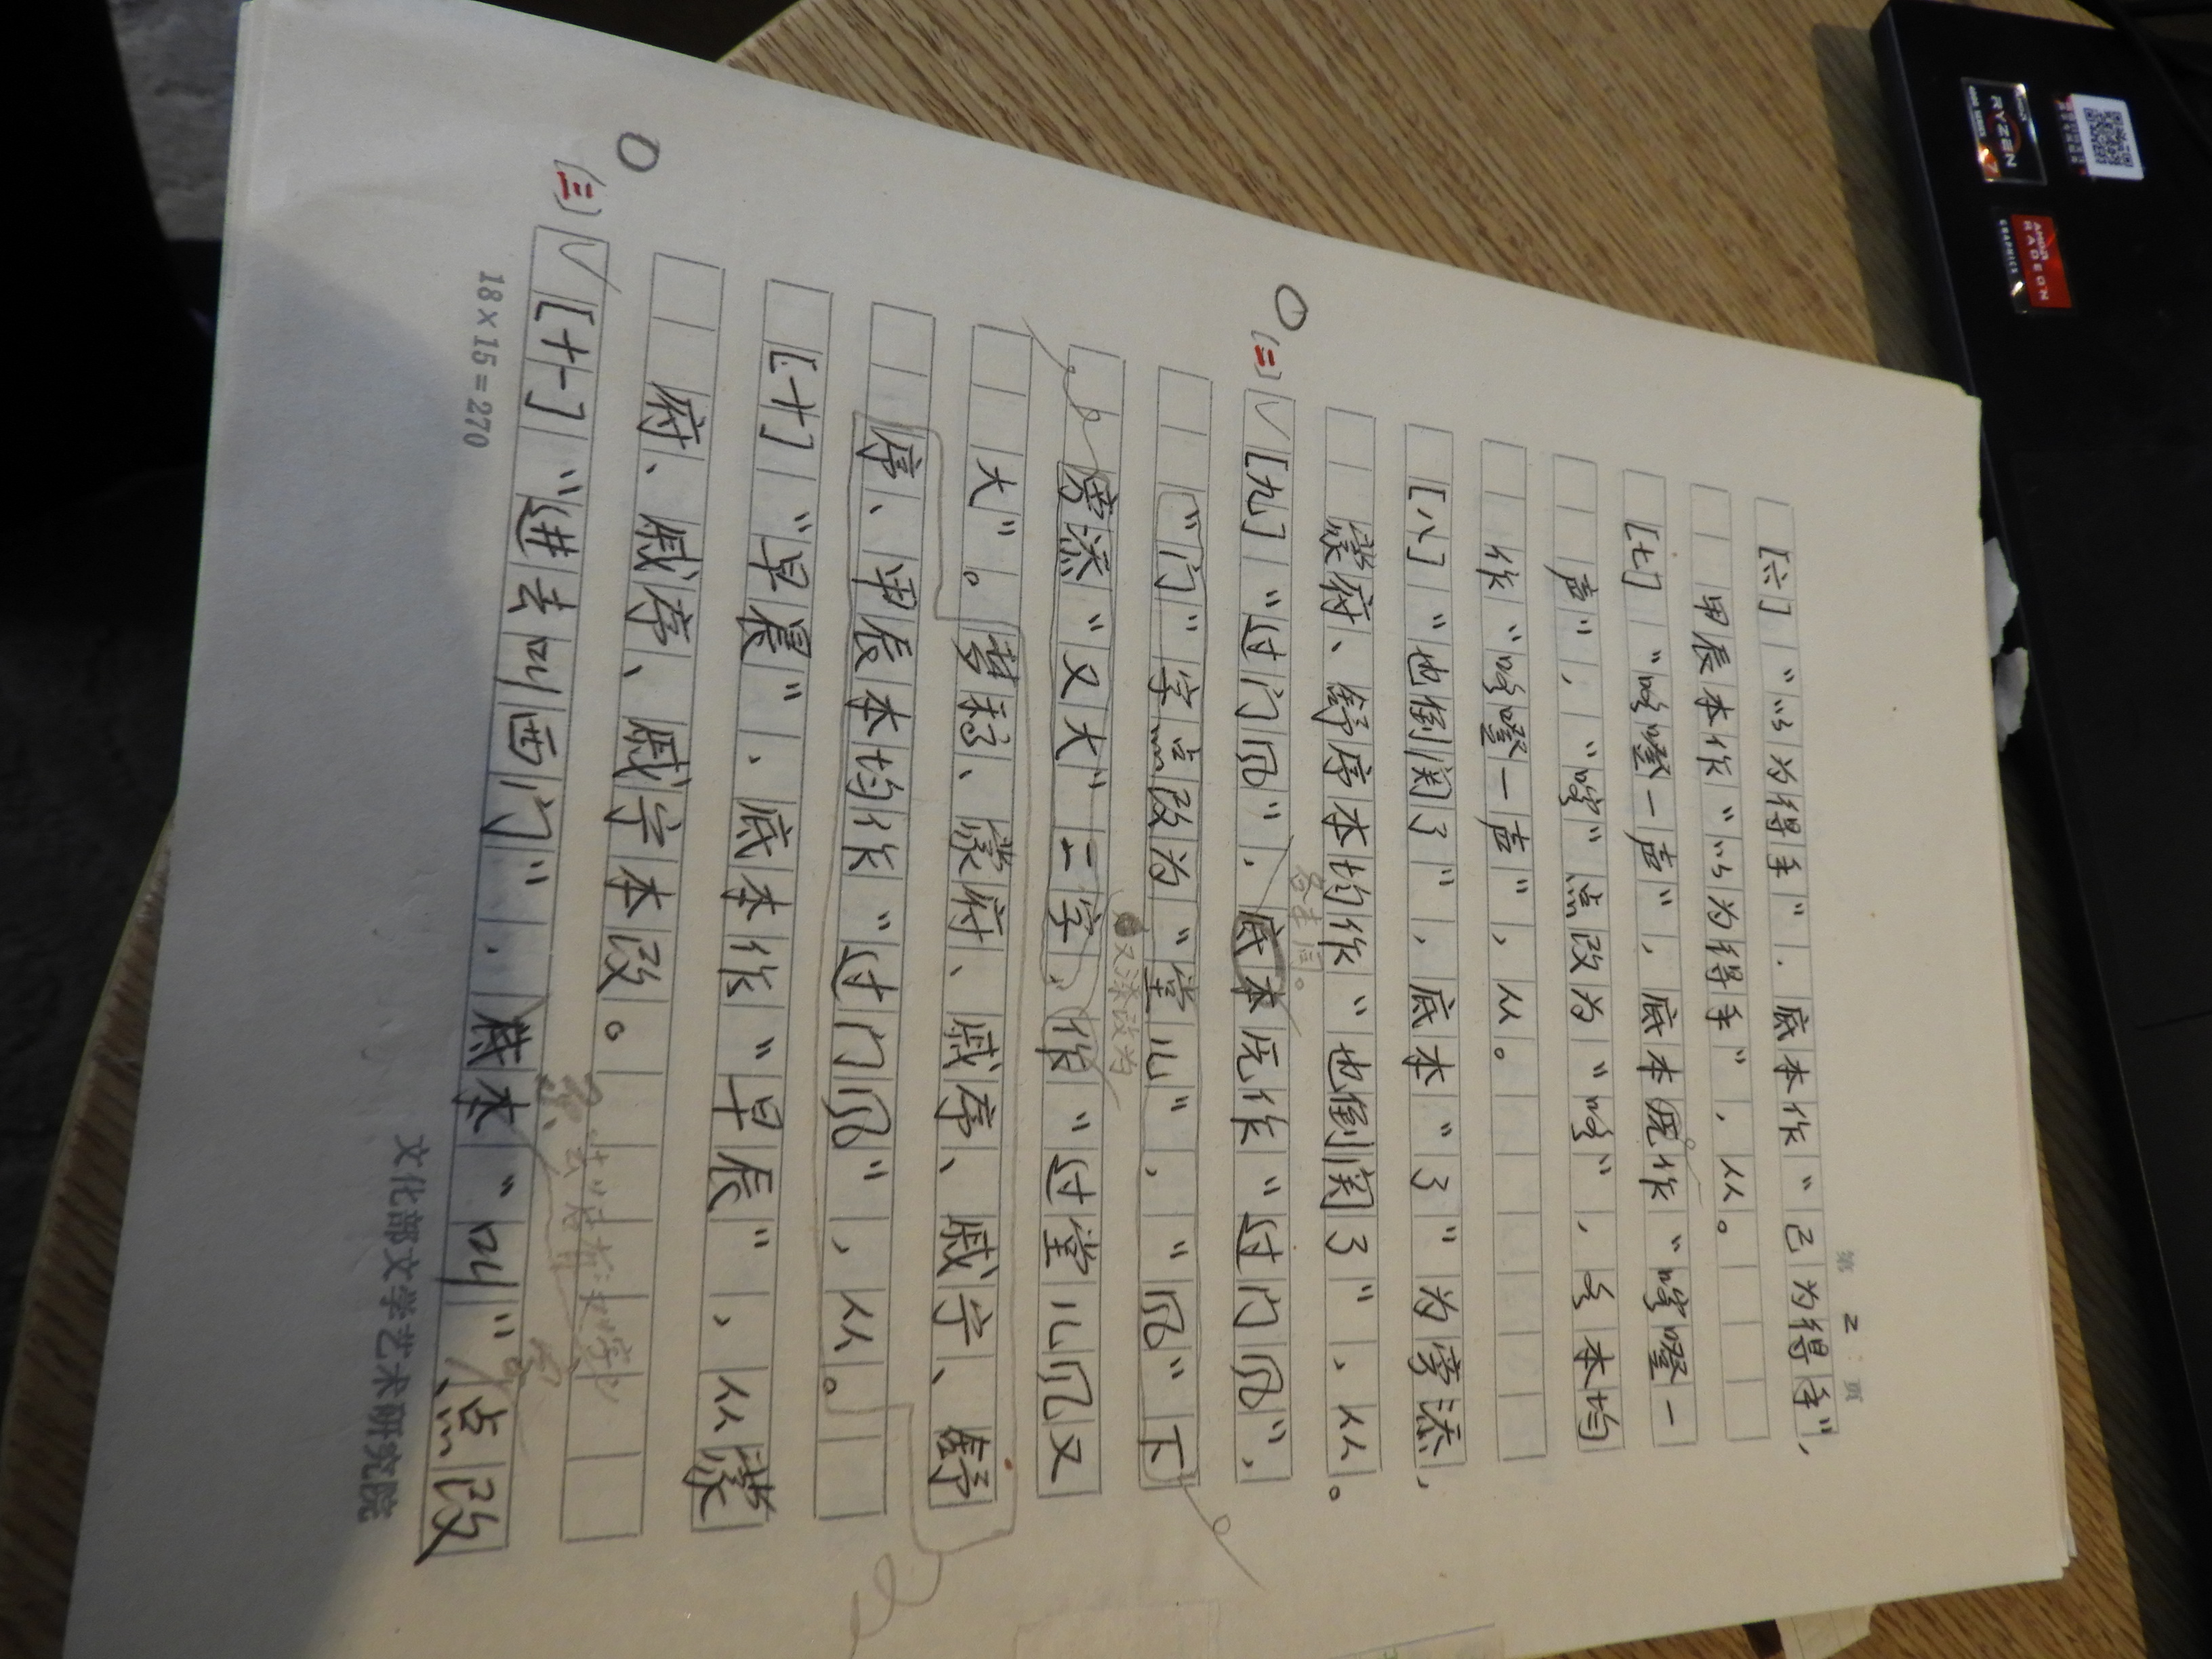 第 2 页
[六]“以为得手”．底本作“已为得手”，
甲辰本作“以为得手”，从。
[七]“咯噔一声”，底本原作“噔噔一
声”，“噔”点改为“咯”，各本均
作“咯噔一声”，从。
[八]“也倒关了”，底本“了”为旁添，
蒙府、舒序本均作“也倒关了”，从。
各本同。
(二)√[九]“过门风”．底本原作“过门风”，
“门”字点改为“堂儿”，“风”下
又添改为
旁添“又大”二字．作“过堂儿风又
大”。梦稿、蒙府、戚序、戚宁、舒
序、甲辰本均作“过门风”，从。
[十]“早晨”．底本作“早辰”，从蒙
府、戚序、戚宁本改。
(三)√[十一]“进去叫西门”．底本“叫”点改
18×15=270
文化部文学艺术研究院
RYZEN
7
AMD
RADEON
GRAPHICS